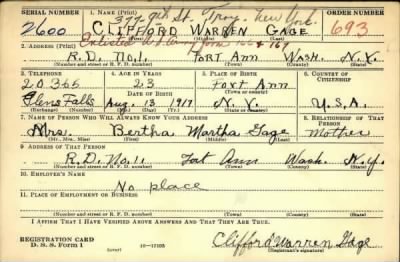 SERIAL NUMBER 1. NAME (Print) ORDER NUMBER
377 9th St. Troy, New York.
2600 CLIFFORD WARREN GAGE 693
(First) (Middle) (Last)
Enlisted Army form 166 + 169
2. ADDRESS (Print)
R.D. No.1. FORT ANN WASH. N.Y.
(Number and street or R. F. D. number) (Town) (County) (State)
3. TELEPHONE 4. AGE IN YEARS 5. PLACE OF BIRTH 6. COUNTRY OF CITIZENSHIP
20365 23 Fort Ann
DATE OF BIRTH (Town or county)
Glens Falls Aug. 13 1917 N.Y. U.S.A.
(Exchange) (Number) (Mo.) (Day) (Yr.) (State or country)
7. NAME OF PERSON WHO WILL ALWAYS KNOW YOUR ADDRESS 8. RELATIONSHIP OF THAT PERSON
Mrs. Bertha Martha Gage Mother
(Mr., Mrs., Miss) (First) (Middle) (Last)
9. ADDRESS OF THAT PERSON
R.D. No.1. Fort Ann Wash. N.Y.
(Number and street or R. F. D. number) (Town) (County) (State)
10. EMPLOYER'S NAME
No place
11. PLACE OF EMPLOYMENT OR BUSINESS
(Number and street or R. F. D. number) (Town) (County) (State)
I AFFIRM THAT I HAVE VERIFIED ABOVE ANSWERS AND THAT THEY ARE TRUE.
REGISTRATION CARD
D. S. S. Form 1 (over) 16—17105 Clifford Warren Gage
(Registrant's signature)